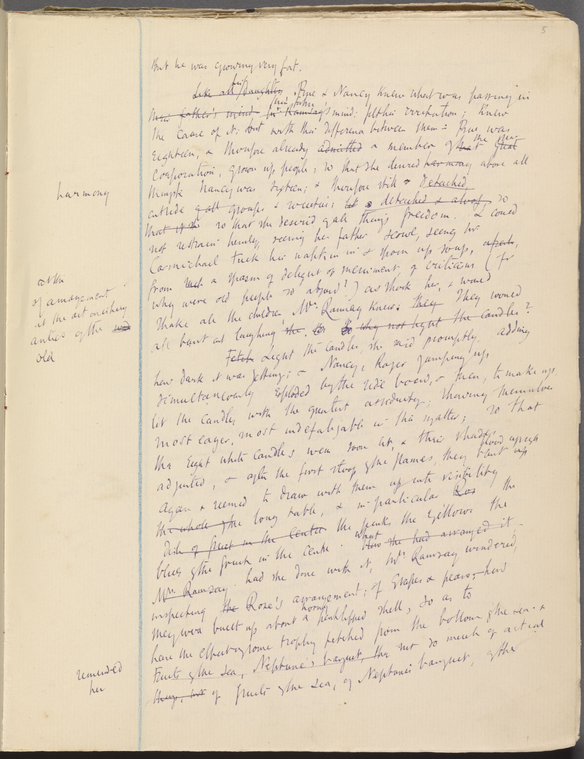 5
But he was growing very fat.
Like all his daughters, Prue & Nancy knew what was passing in
their father's mind: felt his irritation; knew
the cause of it; but with this difference between them: Prue was
Eighteen, & therefore already admitted a member of that great
Corporation, grown up people; so that she desired harmony above all
things. Nancy was sixteen; & therefore still detached,
harmony
outside all groups & societies; detached & aloof, so
that if so that she desired things freedom. & could
not restrain herself, seeing her father scowl, seeing Mr
Carmichael tuck his napkin in & spoon up soup,
from such a spasm of delight of merriment, of criticism (for
why were old people so absurd?) as shook her, & would
or the
of amazement
at the astonishing
antics of the
old
shake all the children Mrs Ramsay knew. They would
all burst out laughing. the candles?
Light the candles, she said promptly, adding
how dark it was getting: & Nancy, Roger jumping up,
simultaneously exploded by the side board, & then, to make up,
lit the candles with the greatest assiduity; showing themselves
most eager, most indefatigable in the matter; so that
the Eight white candles were soon lit & their shades
adjusted, & after the first stoop of the flames, they stood upright
again & seemed to draw with them up into visibility
the whole of the long table, & in particular the
dish of fruit in the centre the purples the yellows the
blues of the fruit in the centre. What
Mrs Ramsay had she done with it, Mrs Ramsay wondered
inspecting the Rose's arrangement; of Grapes & pears; how
they were built up about a horny pinklipped shell, so as to
have the effect of some trophy fetched from the bottom of the sea. &
Fruits of the sea, Neptune's banquet, they not so much of actual
reminded
her
of fruits of the sea, of Neptune's banquet, of the